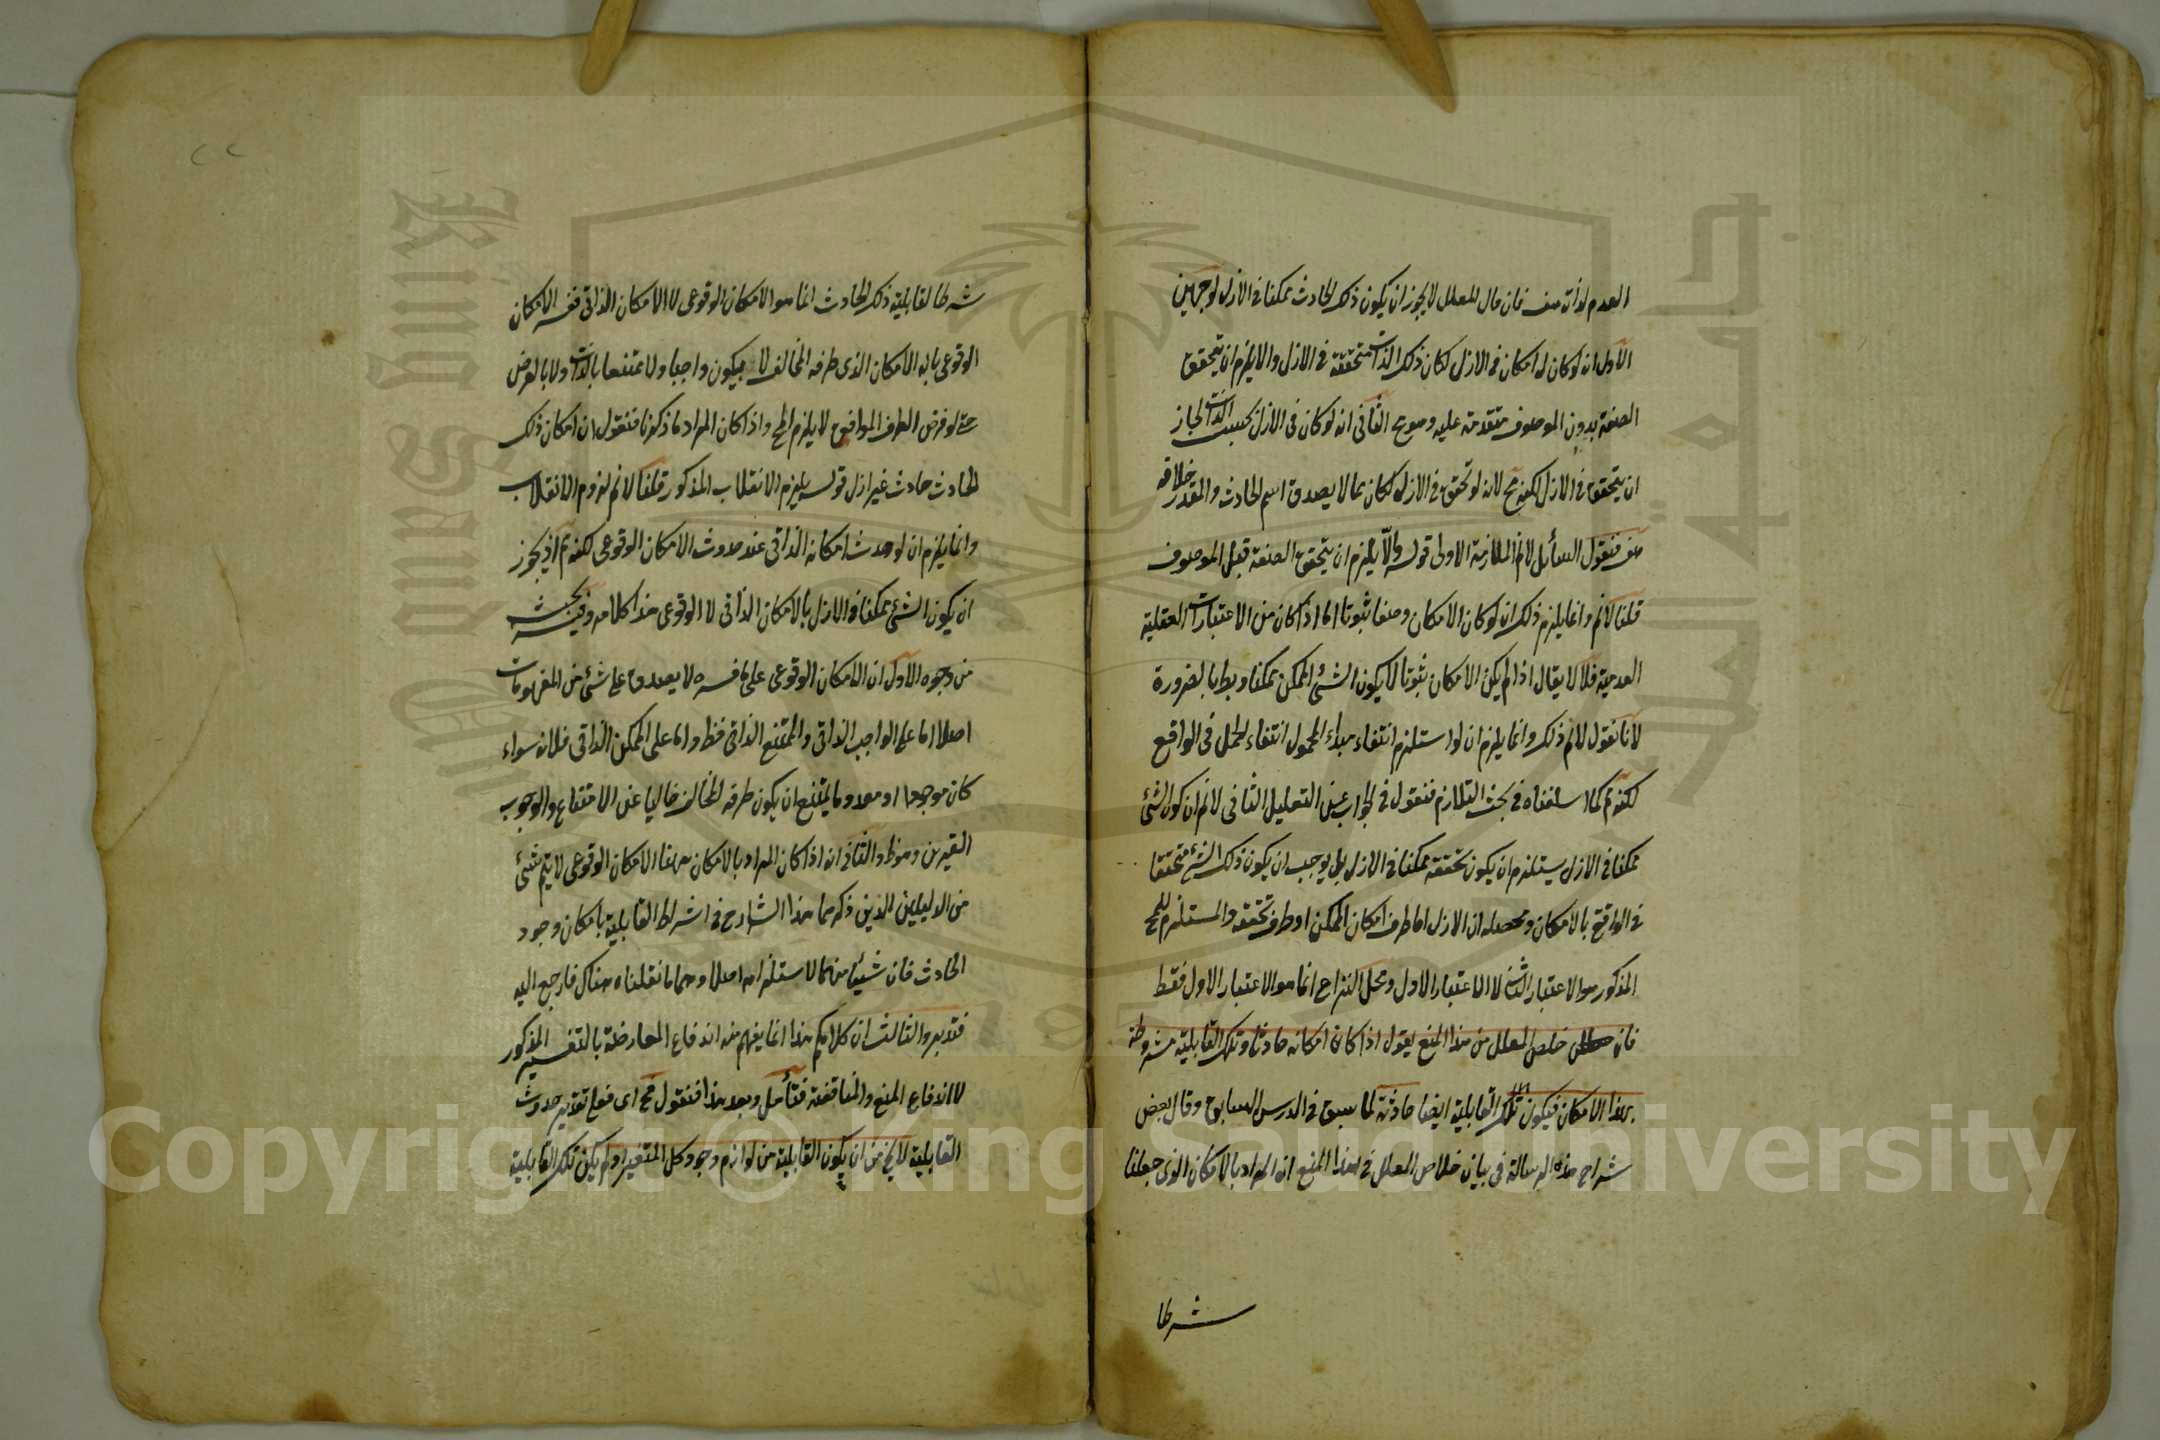 العدم لذاته هف فان قال المعلل لا يجوز ان يكون ذلك الحادث ممكنا في الازل لوجهين
الاول انه لو كان له امكان في الازل لكان ذلك الذات متحققة في الازل والا يلزم ان يتحقق
الصفة بدون الموصوف متقدمة عليه وهو مح الثاني انه لو كان في الازل بحسب الذات لجاز
ان يتحقق في الازل لكنه مح لانه لو تحقق في الازل لكان مما لا يصدق اسم الحادث والمقدر خلافه
هف فنقول السائل لا نم الملازمة الاولى قوله والا يلزم ان يتحقق الصفة قبل الموصوف
قلنا لا نم وانما يلزم ذلك ان لو كان الامكان وصفا ثبوتا اما اذا كان من الاعتبارات العقلية
العدمية فلا لا يقال اذا لم يكن الامكان ثبوتا لا يكون الشئ الممكن ممكنا وبط بالضرورة
لانا نقول لا نم ذلك وانما يلزم ان لو استلزم انتفاء مبداء المحمول انتفاء الحمل في الواقع
لكنه مم كما اسلفناه في بحث التلازم فنقول في الجواب عن التعليل الثاني لا نم ان كون الشئ
ممكنا في الازل يستلزم ان يكون تحققه ممكنا في الازل بل يوجب ان يكون ذلك الشئ متحققا
في الواقع بالامكان ومحصله ان الازل اما طرف امكان الممكن او طرف تحققه والمستلزم للمح
المذكور هو الاعتبار الثاني لا الاعتبار الاول ومحل النزاع انما هو الاعتبار الاول فقط
فان خلص المعلل من هذا المنع يقول اذا كان امكانه حادثا وتلك القابلية مشروطة
بهذا الامكان فيكون تلك القابلية ايضا حادثة لما سبق في الدرس السابق وقال بعض
شراح هذه الرسالة في بيان خلاص المعلل في هذا المنع ان المراد بالامكان الذي جعلنا
شرطا
شرطا لقابلية ذلك الحادث انما هو الامكان الوقوعي لا الامكان الذاتي ففسر الامكان
الوقوعي بانه الامكان الذي طرفه المخالف لا يكون واجبا ولا ممتنعا بالذات ولا بالعرض
حتى لو فرض الطرف الموافق لا يلزم المح واذا كان المراد ما ذكرنا فنقول ان امكان ذلك
الحادث حادث غير ازل قوله يلزم الانقلاب المذكور قلنا لا نم لزوم الانقلاب
وانما يلزم ان لو حدث امكانه الذاتي عند حدوث الامكان الوقوعي لكنه مم اذ يجوز
ان يكون الشئ ممكنا في الازل بالامكان الذاتي لا الوقوعي هذا كلامه وفيه بحث
من وجوه الاول ان الامكان الوقوعي على ما فسره لا يصدق على شئ من المفهومات
اصلا اما على الواجب الذاتي والممتنع الذاتي فظ واما على الممكن الذاتي فلانه سواء
كان موجودا او معدوما يمتنع ان يكون طرفه المخالف خاليا عن الامتناع والوجوب
الغيرين وهو ظ والثاني انه اذا كان المراد بالامكان ههنا الامكان الوقوعي لا يتم شئ
من الدليلين الذين ذكرهما هذا الشارح في اشراط القابلية بامكان وجود
الحادث فان شيئا منهما لا استلزامه اصلا وهما ما نقلناه هناك فارجع اليه
فتدبر والثالث ان كلامكم هذا انما يفهم منه اندفاع المعارضة بالتفسير المذكور
لا اندفاع المنع والمناقضة فتأمل وبعد هذا فنقول مح اى فعلى تقدير حدوث
القابلية لا يخ من ان يكون القابلية من لوازم وجود كل المتغير او لم يكن تلك القابلية
٢٢
Copyright © King Saud University
King Saud University
جامعة الملك سعود
1957